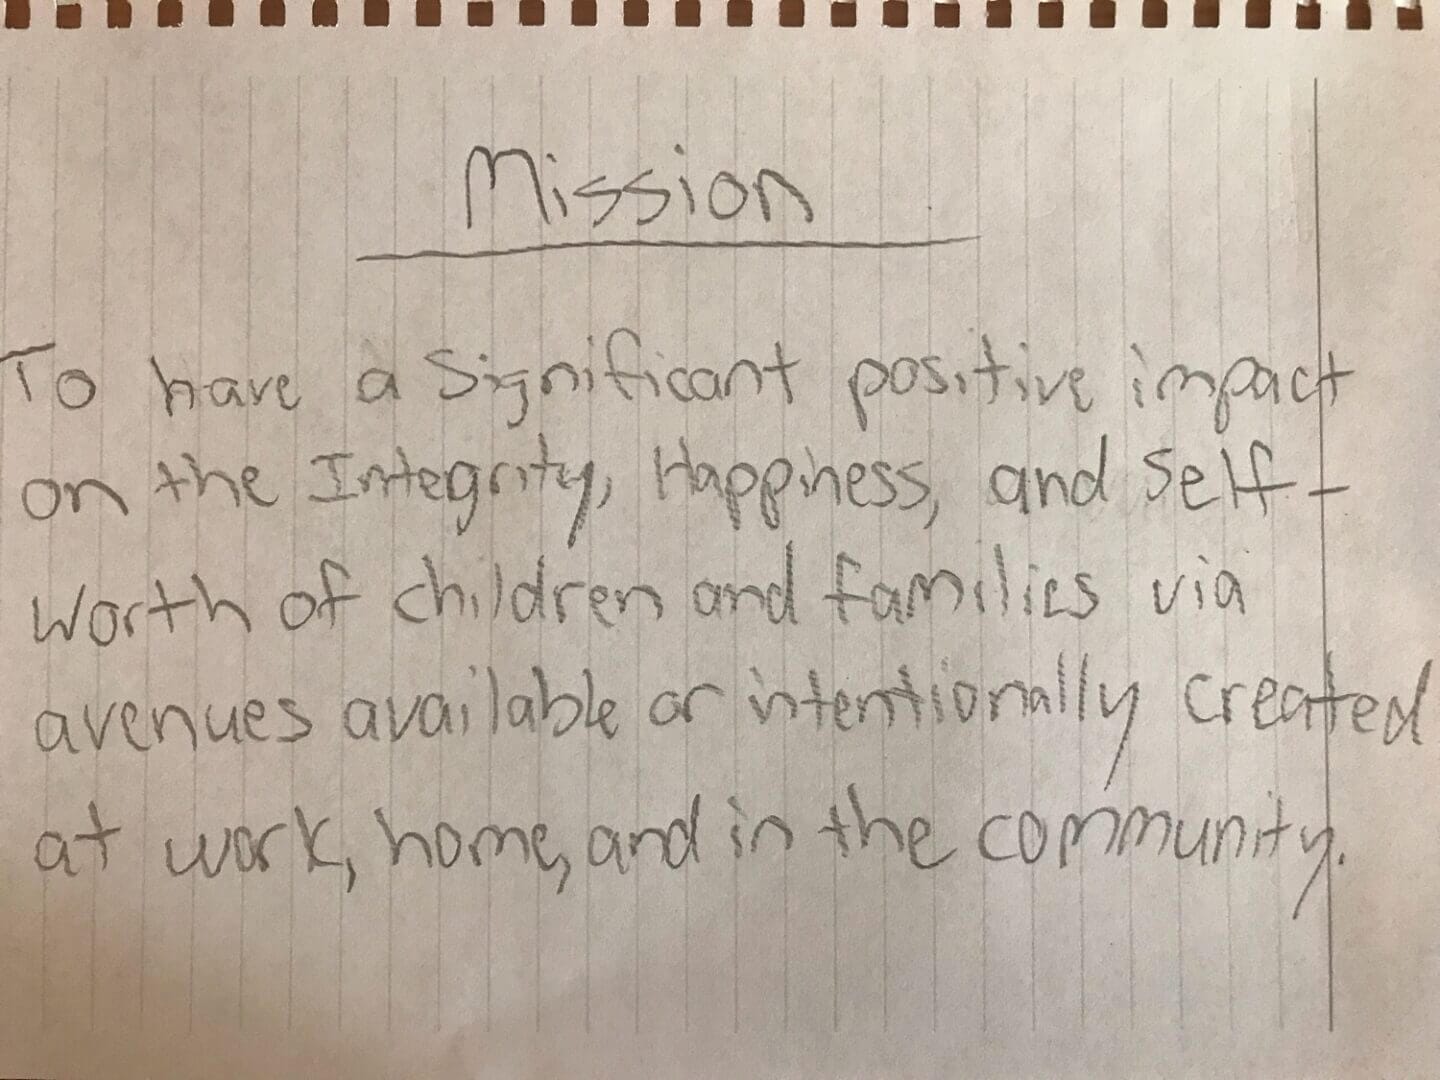 Mission
To have a Significant positive impact
on the Integrity, Happiness, and Self-
worth of children and families via
avenues available or intentionally created
at work, home, and in the community.